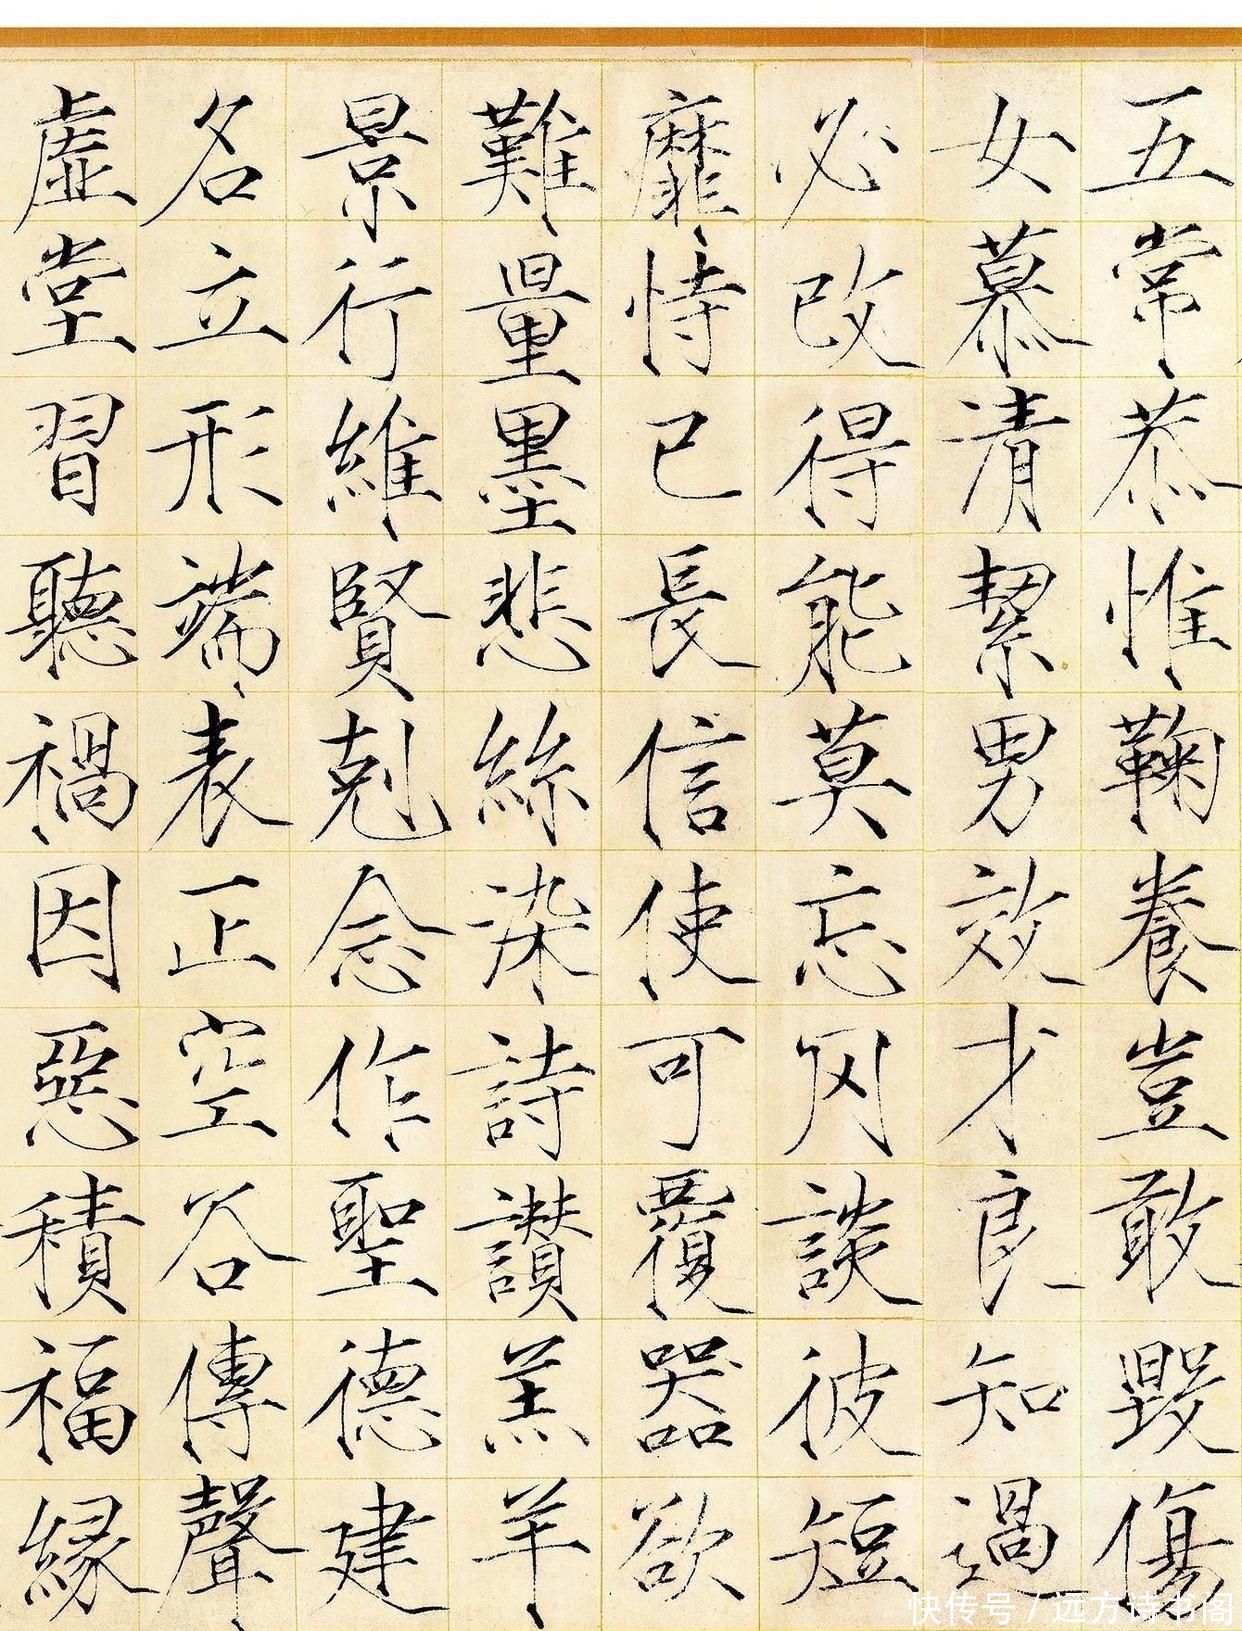 五常恭惟鞠養豈敢毀傷
女慕清絜男效才良知過
必改得能莫忘罔談彼短
靡恃己長信使可覆器欲
難量墨悲絲染詩讃羔羊
景行維賢剋念作聖德建
名立形端表正空谷傳聲
虛堂習聽禍因惡積福緣
快传号 / 远方诗书阁